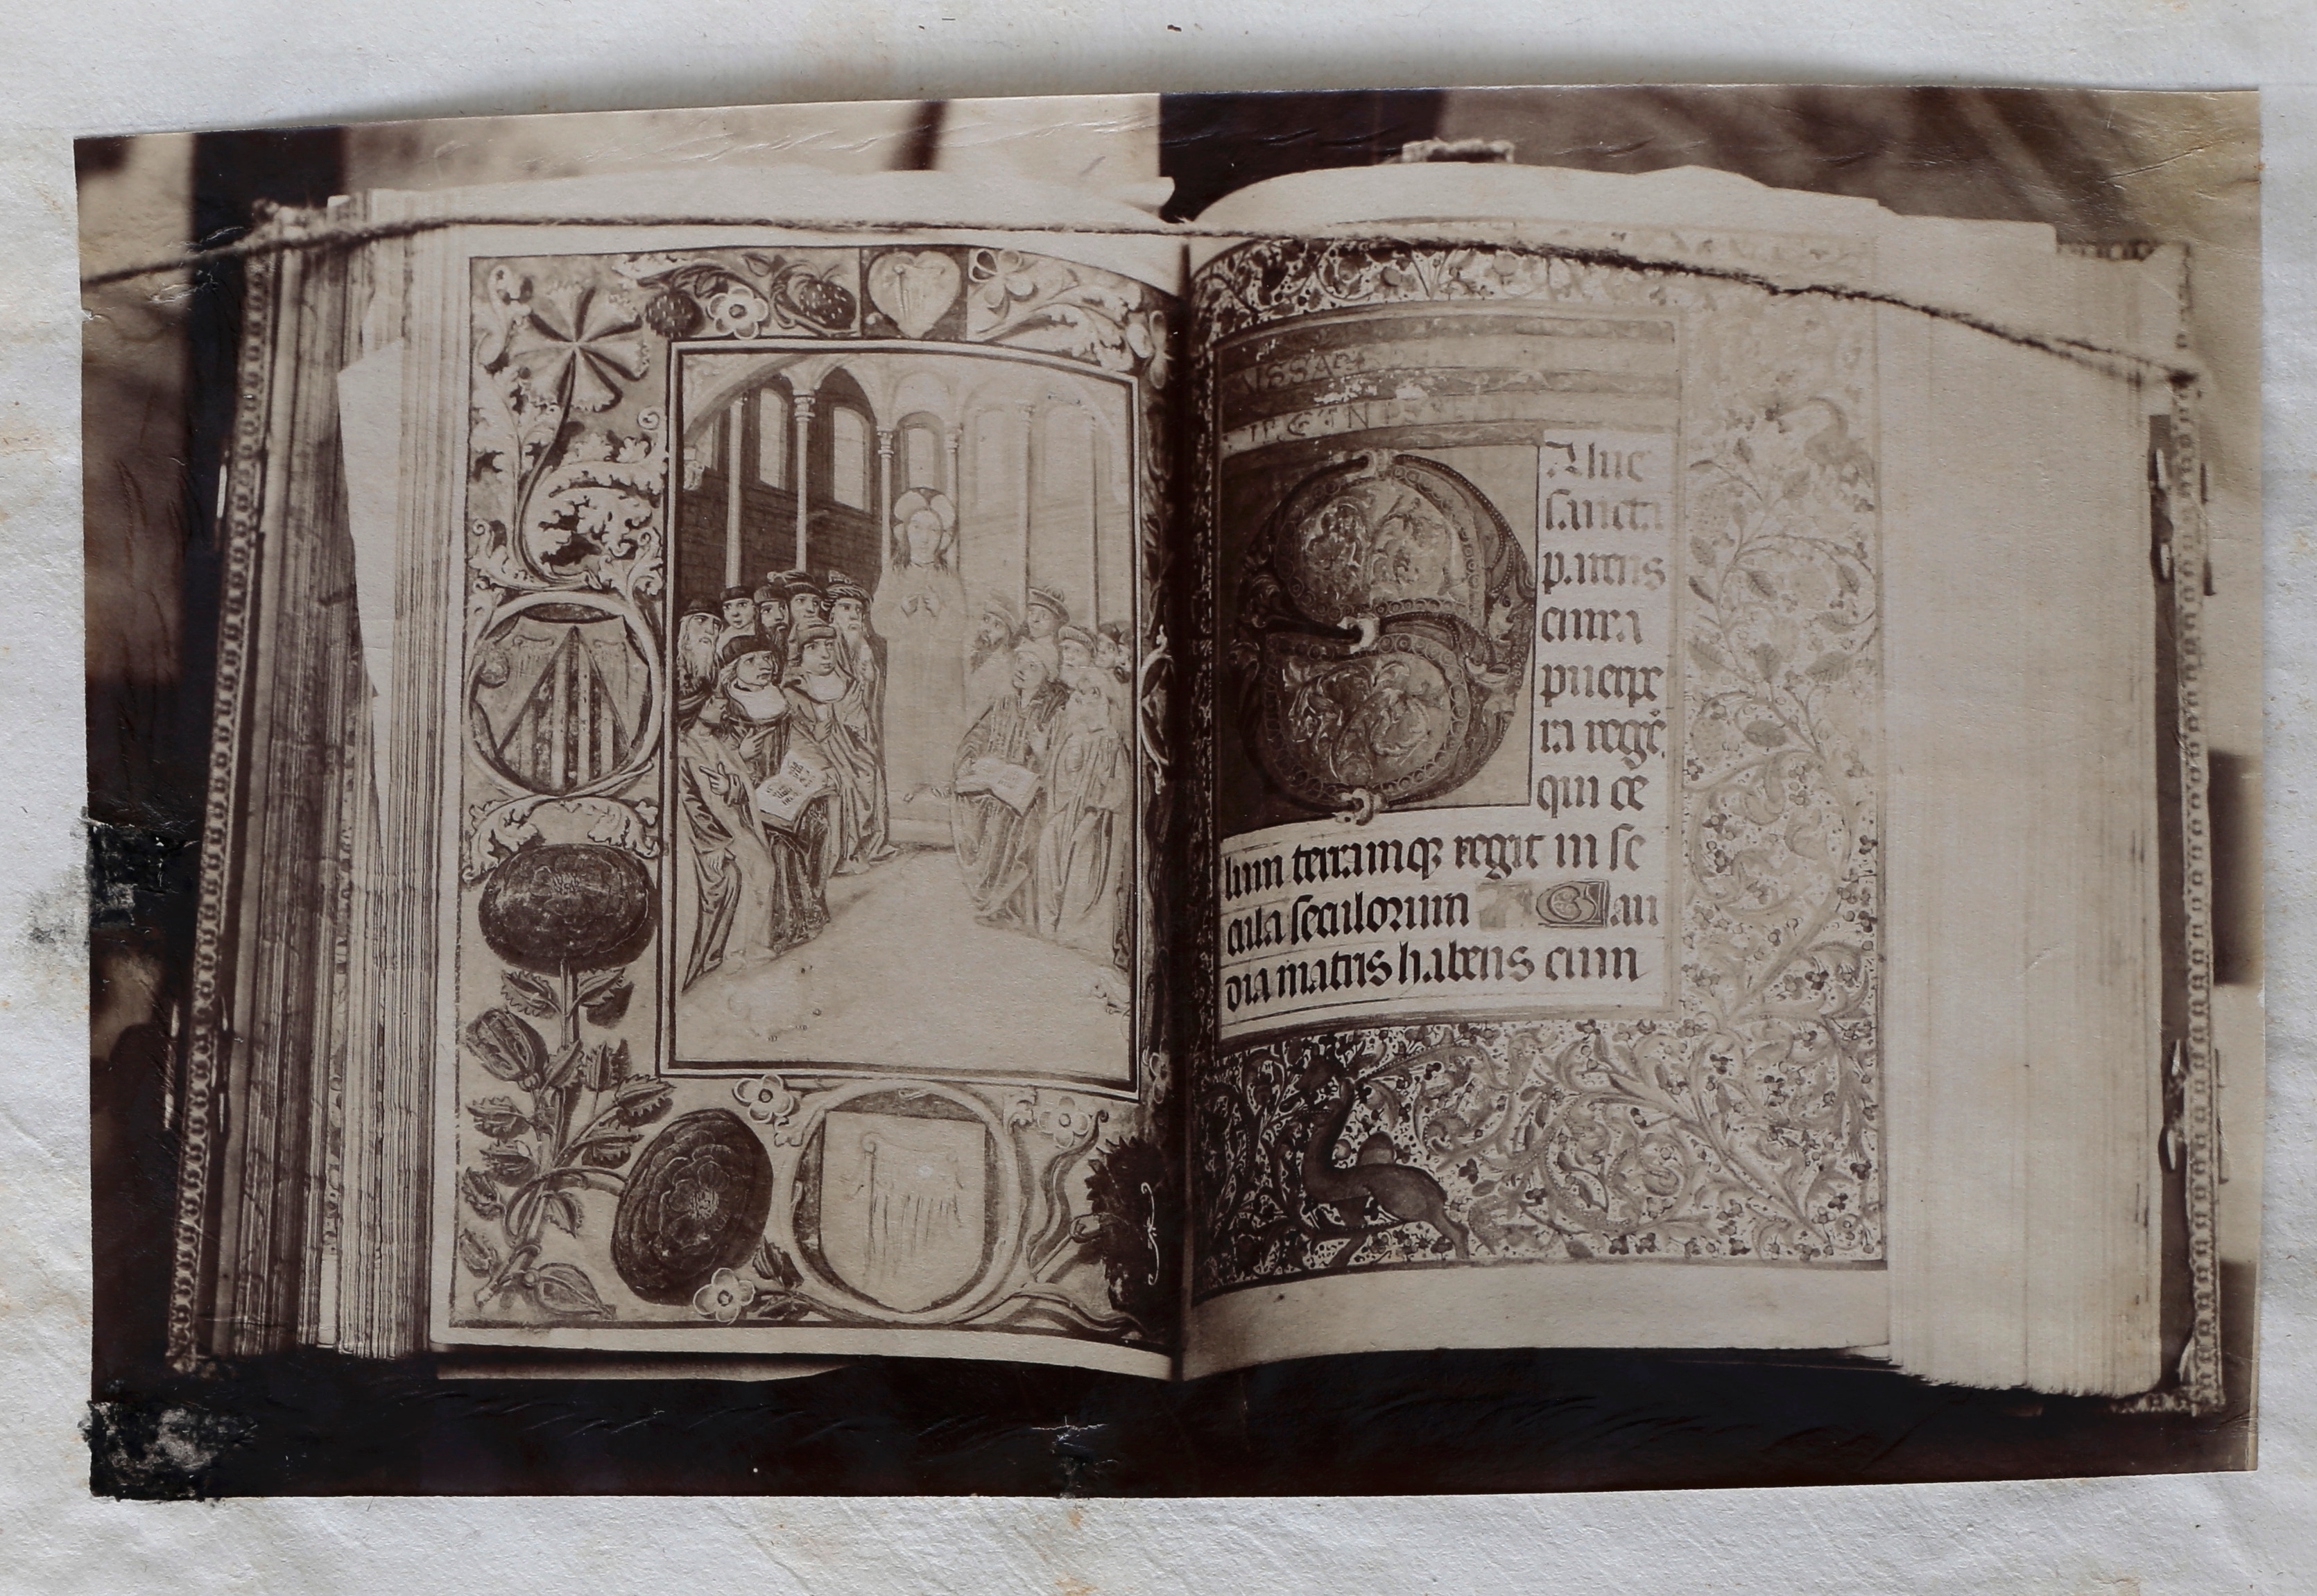 Salue
sancta
parens
enixa
puerpe
ra regē
qui ce
lum terramqꝫ regit in se
cula seculorum Gau
dia matris habens cum